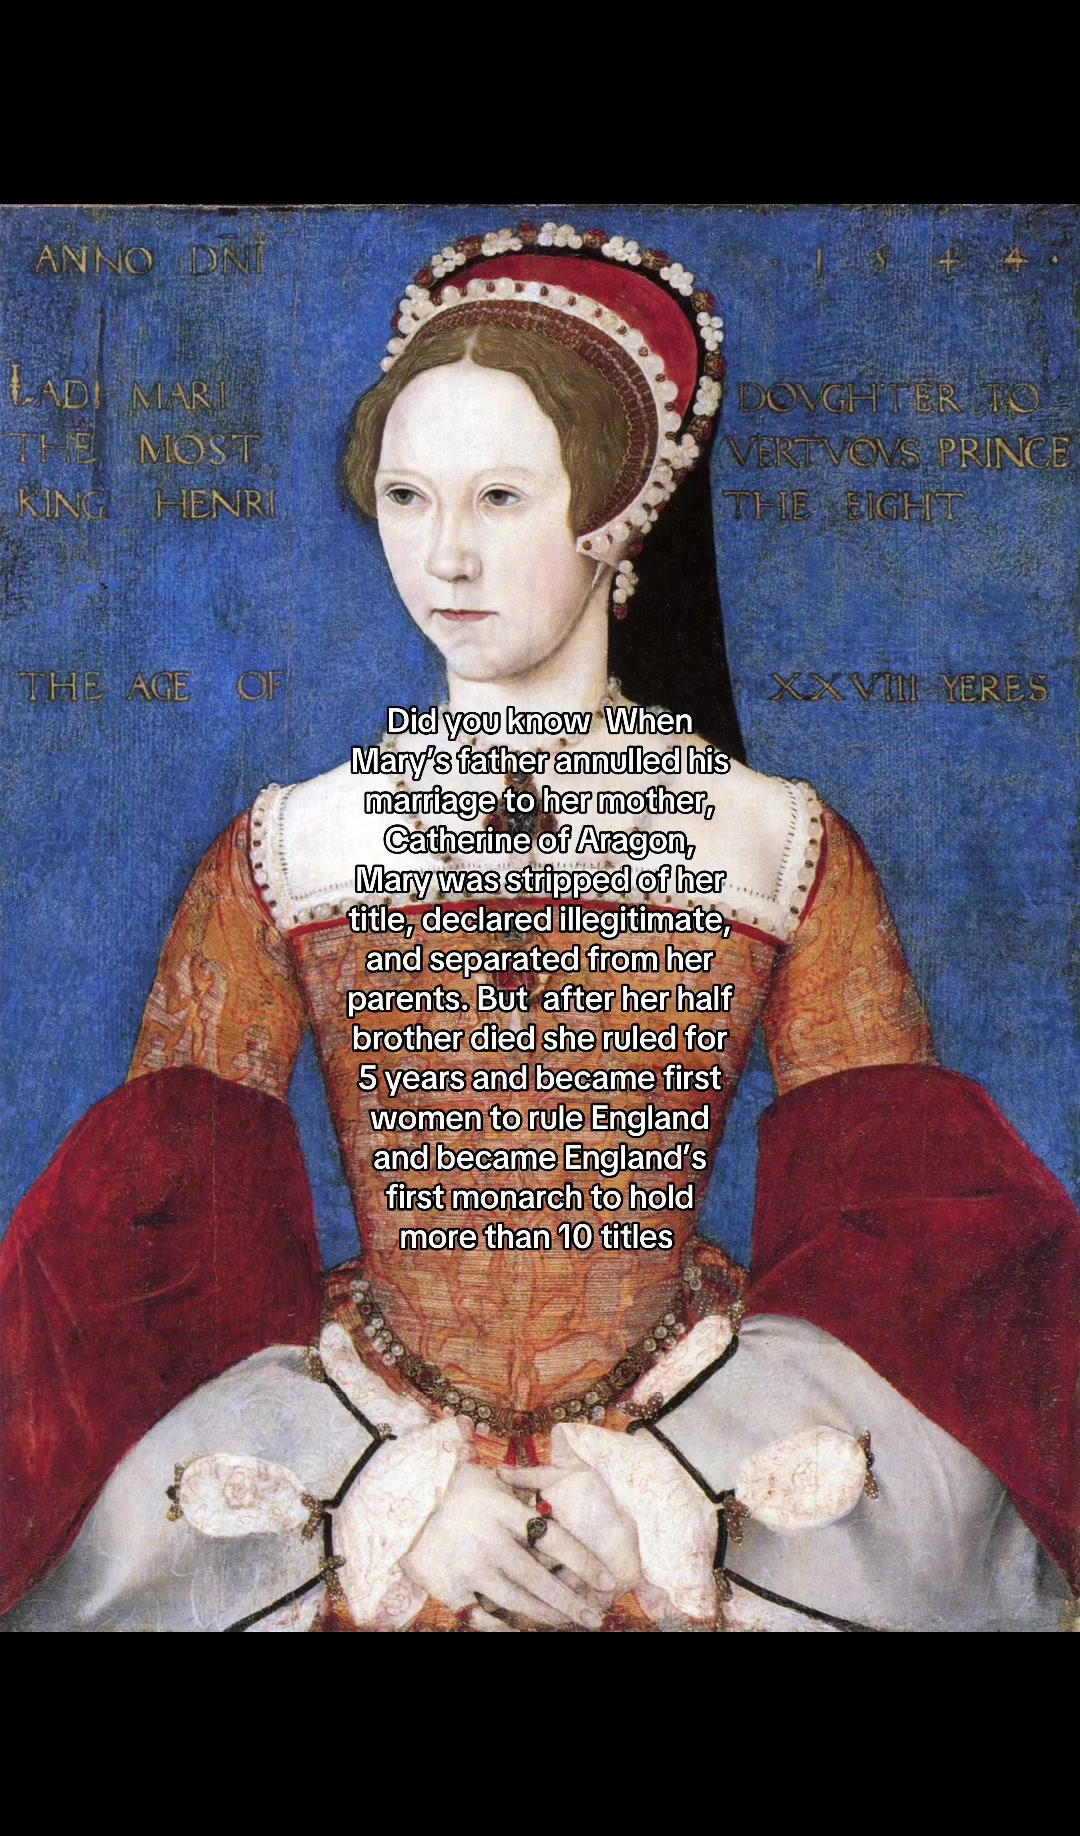 ANNO DNI . 1 5 4 4 .
LADI MARI DOVGHTER TO
THE MOST VERTVOVS PRINCE
KING HENRI THE EIGHT
THE AGE OF XXVIII YERES
Did you know When
Mary’s father annulled his
marriage to her mother,
Catherine of Aragon,
Mary was stripped of her
title, declared illegitimate,
and separated from her
parents. But after her half
brother died she ruled for
5 years and became first
women to rule England
and became England’s
first monarch to hold
more than 10 titles